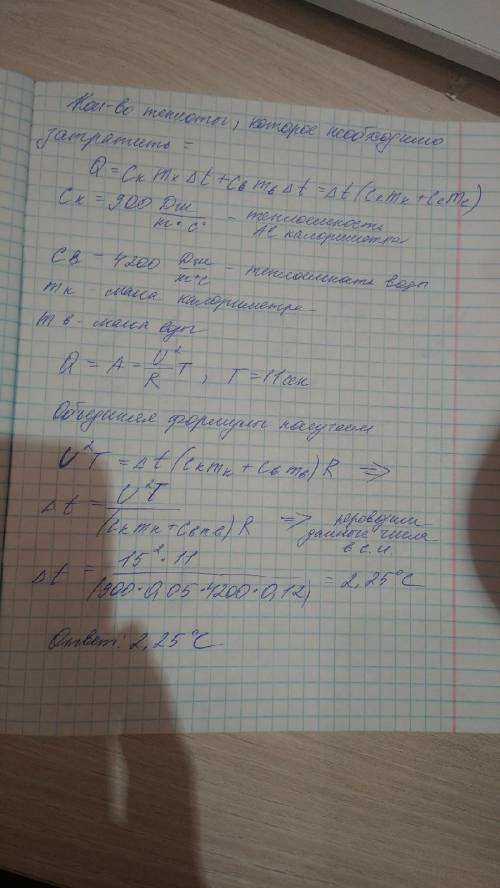 Кол-во теплоты, которое необходимо
затратить =
Q = Cк mк Δt + Cв mв Δt = Δt (Cк mк + Cв mв)
Cк = 900 Дж/m°C° - теплоемкость
Al калориметра
Cв = 4200 Дж/m°C - теплоемкость воды
mк - масса калориметра
mв - масса воды
Q = A = U²/R T, T = 11 сек
Объединяя формулы получаем
U²T = Δt (Cк mк + Cв mв) R ⟹
Δt = U²T/(Cк mк + Cв mв) R ⟹ переводим
данные числа
в с.и.
Δt = 15² · 11/(900 · 0,05 · 4200 · 0,12) = 2,25°C
Ответ: 2,25°C